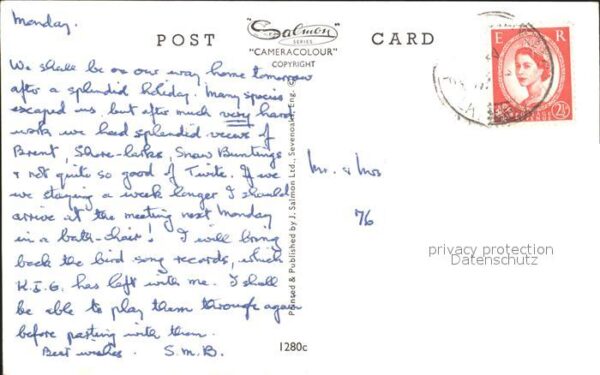 Monday.
POST "Salmon" SERIES CARD
"CAMERACOLOUR"
COPYRIGHT
We shall be on our way home tomorrow
after a splendid holiday. Many species
escaped us, but after much very hard
work we had splendid views of
Brent, Shore-larks, Snow Buntings
& not quite so good of Twite. If we
were staying a week longer I should
arrive at the meeting next Monday
in a bath-chair! I will bring
back the bird song records, which
K.I.G. has left with me. I shall
be able to play them through again
before parting with them.
Best wishes. S.M.B.
Printed & Published by J. Salmon Ltd., Sevenoaks, Eng. ©
1280c
E R
2½
Mr. & Mrs
76
privacy protection
Datenschutz